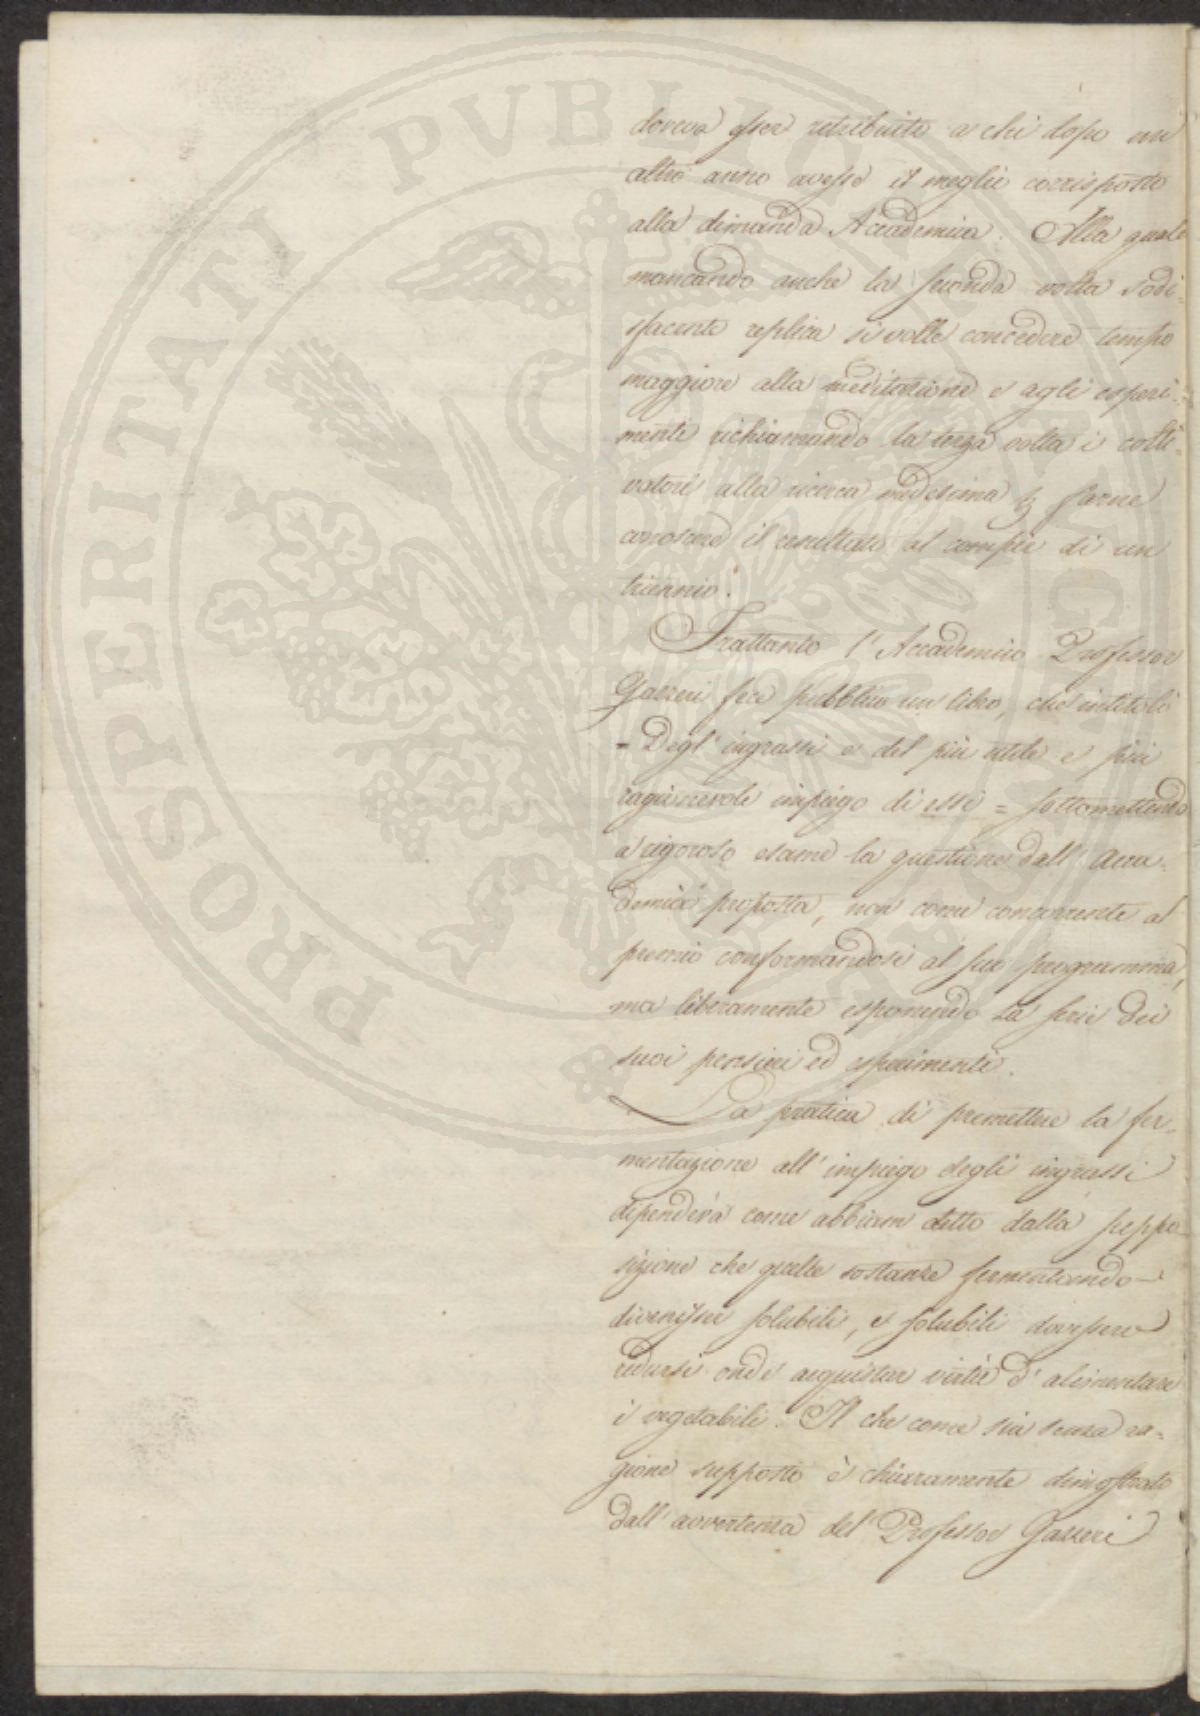 doveva esser retribuito a chi dopo un
altro anno avesse il meglio corrisposto
alla dimanda Accademica. Alla quale
mancando anche la seconda volta sodi-
sfacente replica si volle concedere tempo
maggiore alla meditazione e agli esperi-
menti richiamando la terza volta i colti-
vatori alla ricerca medesima farne
conoscere il resultato al compir di un
triennio.
Frattanto l'Accademico Professor
Gazzeri fece pubblico un libro, che intitolò
= Degl'ingrassi e del più utile e più
ragionevole impiego di essi = sottomettendo
a rigoroso esame la questione dall'Acca-
demia proposta, non come concorrente al
premio conformandosi al suo programma,
ma liberamente esponendo la serie dei
suoi pensieri ed esperimenti.
La pratica di premettere la fer-
mentazione all'impiego degli ingrassi
dipendeva come abbiam detto dalla suppo-
sizione che quelle sostanze fermentando
divenisser solubili, e solubili dovessero
ridursi onde acquistar virtù d'alimentare
i vegetabili. Il che come sia senza ra-
gione supposto è chiaramente dimostrato
dall'avvertenza del Professor Gazzeri
PROSPERITATI PVBLICAE AVGENDAE